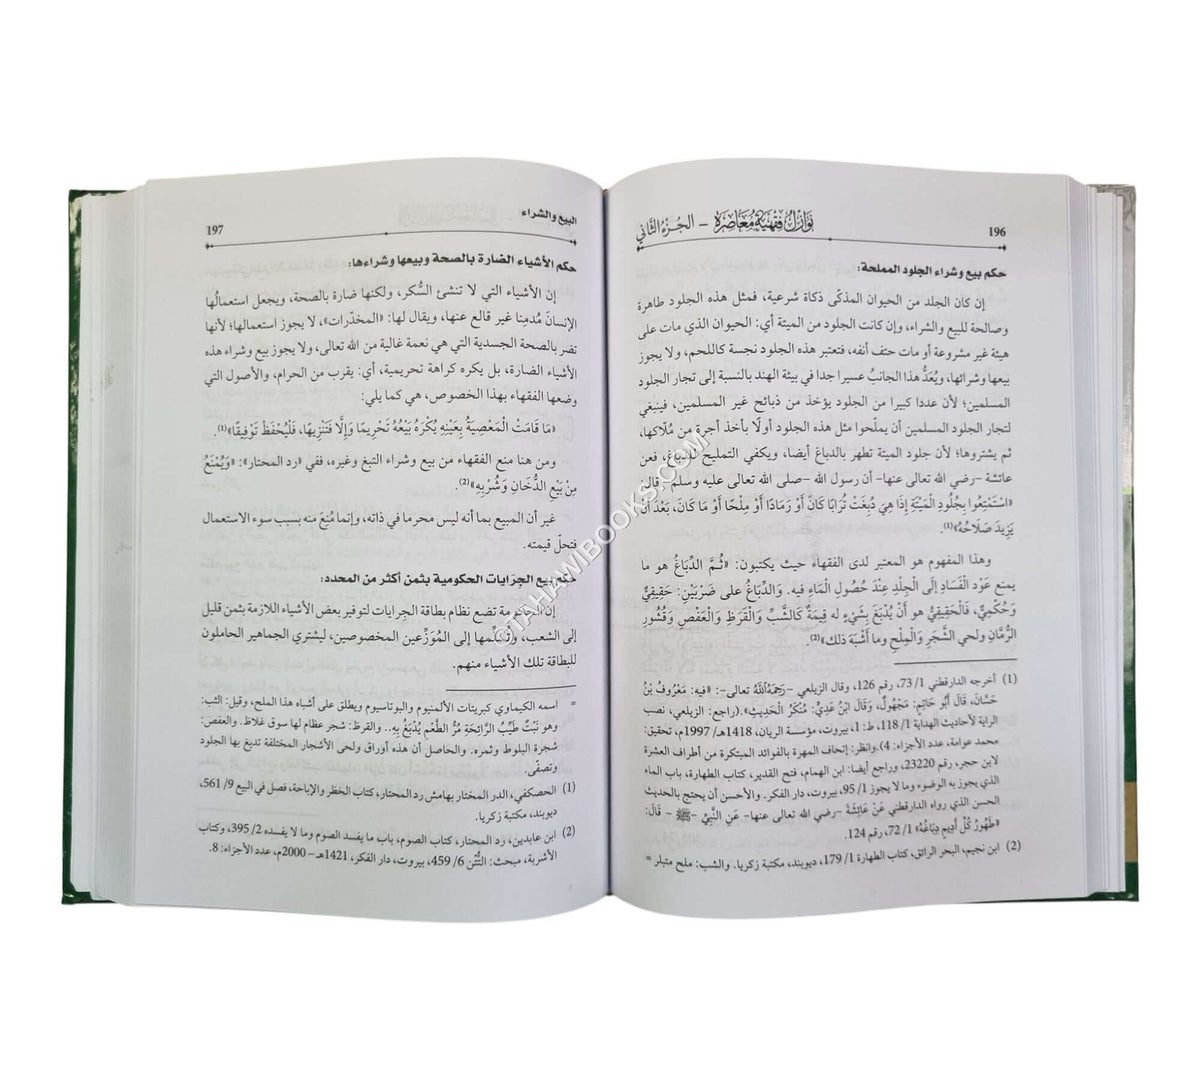 196
نوازل فقهية معاصرة – الجزء الثاني
حكم بيع وشراء الجلود المملحة:
إن كان الجلد من الحيوان المذكّى ذكاة شرعية، فمثل هذه الجلود طاهرة
وصالحة للبيع والشراء، وإن كانت الجلود من الميتة أي: الحيوان الذي مات على
هيئة غير مشروعة أو مات حتف أنفه، فتعتبر هذه الجلود نجسة كاللحم، ولا يجوز
بيعها وشرائها، ويُعَدُّ هذا الجانبُ عسيرا جدا في بيئة الهند بالنسبة إلى تجار الجلود
المسلمين؛ لأن عددا كبيرا من الجلود يؤخذ من ذبائح غير المسلمين، فينبغي
لتجار الجلود المسلمين أن يملّحوا مثل هذه الجلود أولًا بأخذ أجرة من مُلّاكها،
ثم يشتروها؛ لأن جلود الميتة تطهر بالدباغ أيضا، ويكفي التمليح للدباغ، فعن
عائشة –رضي الله تعالى عنها– أن رسول الله –صلى الله تعالى عليه وسلم– قال:
«اسْتَمْتِعُوا بِجُلُودِ الْمَيْتَةِ إِذَا هِيَ دُبِغَتْ تُرَابًا كَانَ أَوْ رَمَادًا أَوْ مِلْحًا أَوْ مَا كَانَ، بَعْدَ أَنْ
يَزِيدَ صَلَاحُهُ»(1).
وهذا المفهوم هو المعتبر لدى الفقهاء حيث يكتبون: «ثُـمَّ الدِّبَاغُ هو ما
يمنع عَوْد الْفَسَادِ إلَى الْجِلْدِ عِنْدَ حُصُولِ الْمَاءِ فيه. وَالدِّبَاغُ على ضَرْبَيْنِ: حَقِيقِيٌّ
وَحُكْمِيٌّ، فَالْحَقِيقِيُّ هو أَنْ يُدْبَغَ بِشَيْءٍ له قِيمَةٌ كَالشَّبِّ وَالْقَرَظِ وَالْعَفْصِ وَقُشُورِ
الرُّمَّانِ ولحي الشَّجَرِ وَالْمِلْحِ وما أَشْبَهَ ذلك»(2).
(1) أخرجه الدارقطني 1/ 73، رقم 126، وقال الزيلعي –رَحِمَهُ اللَّهُ تعالى–: «فيه: مَعْرُوفُ بْنُ
حَسَّانَ، قَالَ أَبُو حَاتِمٍ: مَجْهُولٌ، وَقَالَ ابْنُ عَدِيٍّ: مُنْكَرُ الْحَدِيثِ».(راجع: الزيلعي، نصب
الراية لأحاديث الهداية 1/ 118، ط: 1، بيروت، مؤسسة الريان، 1418هـ/ 1997م، تحقيق:
محمد عوامة، عدد الأجزاء: 4).وانظر: إتحاف المهرة بالفوائد المبتكرة من أطراف العشرة
لابن حجر، رقم 23220، وراجع أيضا: ابن الهمام، فتح القدير، كتاب الطهارة، باب الماء
الذي يجوز به الوضوء وما لا يجوز 1/ 95، بيروت، دار الفكر. والأحسن أن يحتج بالحديث
الحسن الذي رواه الدارقطني عَنْ عَائِشَةَ –رضي الله تعالى عنها– عَنِ النَّبِيِّ –ﷺ– قَالَ:
«طَهُورُ كُلِّ أَدِيمٍ دِبَاغُهُ» 1/ 72، رقم 124.
(2) ابن نجيم، البحر الرائق، كتاب الطهارة 1/ 179، ديوبند، مكتبة زكريا. والشب: ملح متبلر =
البيع والشراء
197
حكم الأشياء الضارة بالصحة وبيعها وشراءها:
إن الأشياء التي لا تنشئ السُّكر، ولكنها ضارة بالصحة، ويجعل استعمالُها
الإنسانَ مُدمِنا غير قالع عنها، ويقال لها: «المخدّرات»، لا يجوز استعمالها؛ لأنها
تضر بالصحة الجسدية التي هي نعمة غالية من الله تعالى، ولا يجوز بيع وشراء هذه
الأشياء الضارة، بل يكره كراهة تحريمية، أي: يقرب من الحرام، والأصول التي
وضعها الفقهاء بهذا الخصوص، هي كما يلي:
«مَا قَامَتْ الْمَعْصِيَةُ بِعَيْنِهِ يُكْرَهُ بَيْعُهُ تَحْرِيمًا وَإِلَّا فَتَنْزِيهًا، فَلْيُحْفَظْ تَوْفِيقًا»(1).
ومن هنا منع الفقهاء من بيع وشراء التبغ وغيره، ففي «رد المحتار»: «وَيُمْنَعُ
مِنْ بَيْعِ الدُّخَانِ وَشُرْبِهِ»(2).
غير أن المبيع بما أنه ليس محرما في ذاته، وإنما مُنِعَ منه بسبب سوء الاستعمال
فتحلّ قيمته.
حكم بيع الجرَايات الحكومية بثمن أكثر من المحدد:
إن الحكومة تضع نظام بطاقة الجِرايات لتوفير بعض الأشياء اللازمة بثمن قليل
إلى الشعب، وتُسلّمها إلى المُوَزِّعين المخصوصين، ليشتري الجماهير الحاملون
للبطاقة تلك الأشياء منهم.
= اسمه الكيماوي كبريتات الألمنيوم والبوتاسيوم ويطلق على أشباه هذا الملح، وقيل: الشب:
وهو نَبْتٌ طَيِّبُ الرَّائِحَةِ مُرُّ الطَّعْمِ يُدْبَغُ بِهِ.. والقرظ: شجر عظام لها سوق غلاظ. والعفص:
شجرة البلوط وثمره. والحاصل أن هذه أوراق ولحى الأشجار المختلفة تدبغ بها الجلود
وتصفّى.
(1) الحصكفي، الدر المختار بهامش رد المحتار، كتاب الحظر والإباحة، فصل في البيع 9/ 561،
ديوبند، مكتبة زكريا.
(2) ابن عابدين، رد المحتار، كتاب الصوم، باب ما يفسد الصوم وما لا يفسده 2/ 395، وكتاب
الأشربة، مبحث: التُّتُن 6/ 459، بيروت، دار الفكر، 1421هـ – 2000م، عدد الأجزاء: 8.
©TAHAWIBOOKS.COM